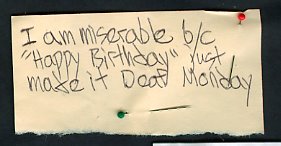 I am miserable b/c
"Happy Birthday" just
make it Deaf Monday